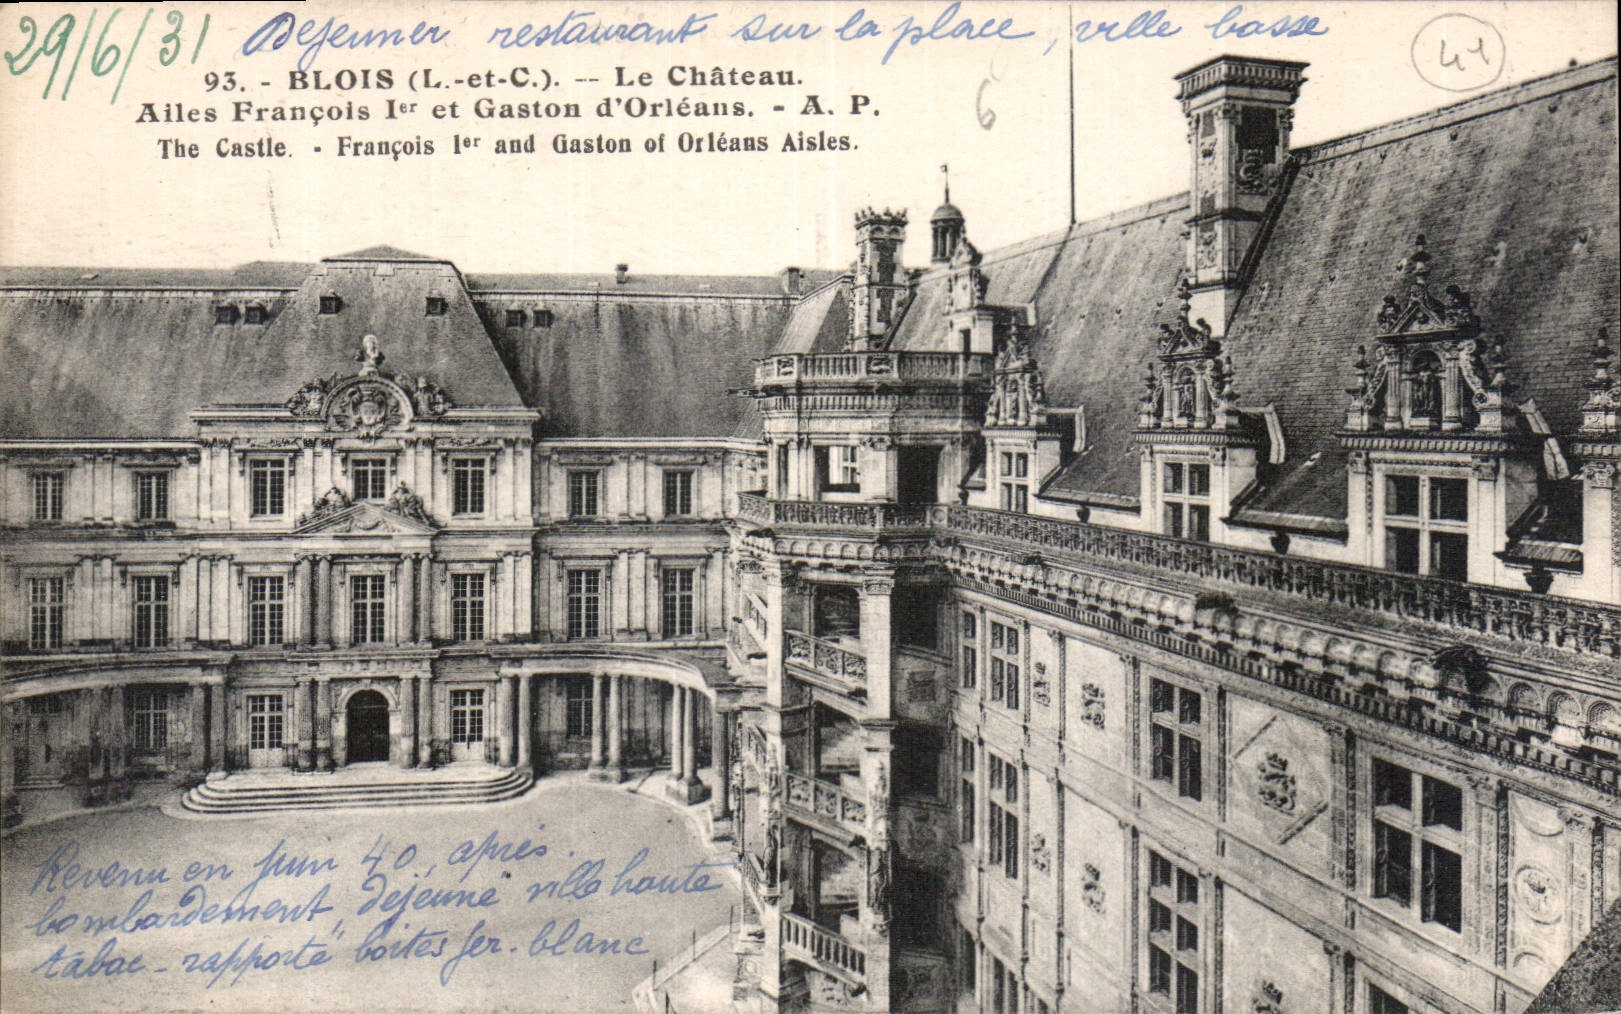 29/6/31 Dejeuner restaurant sur la place, ville basse
41
93. - BLOIS (L.-et-C.). -- Le Château.
6
Ailes François Ier et Gaston d'Orléans. - A. P.
The Castle. - François Ier and Gaston of Orléans Aisles.
Revenu en Juin 40, après
bombardement, déjeuné ville haute
tabac - rapporté boîtes fer-blanc